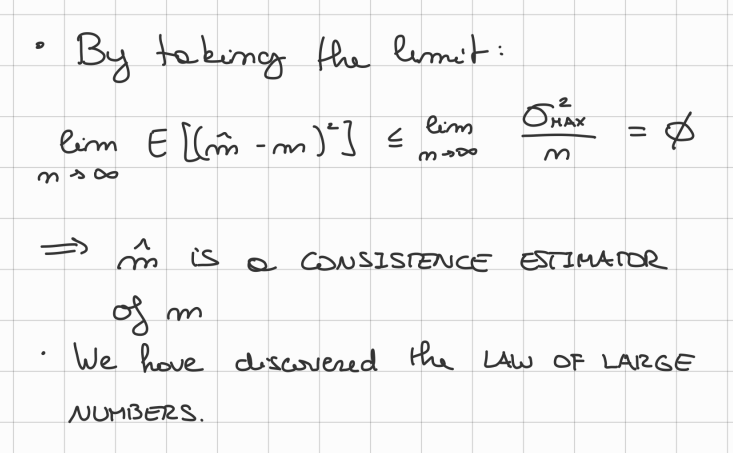 • By taking the limit:
lim n→∞ E[(m̂ - m)²] ≤ lim n→∞ σ²MAX / n = ∅
⟹ m̂ is a CONSISTENCE ESTIMATOR
of m
• We have discovered the LAW OF LARGE
NUMBERS.